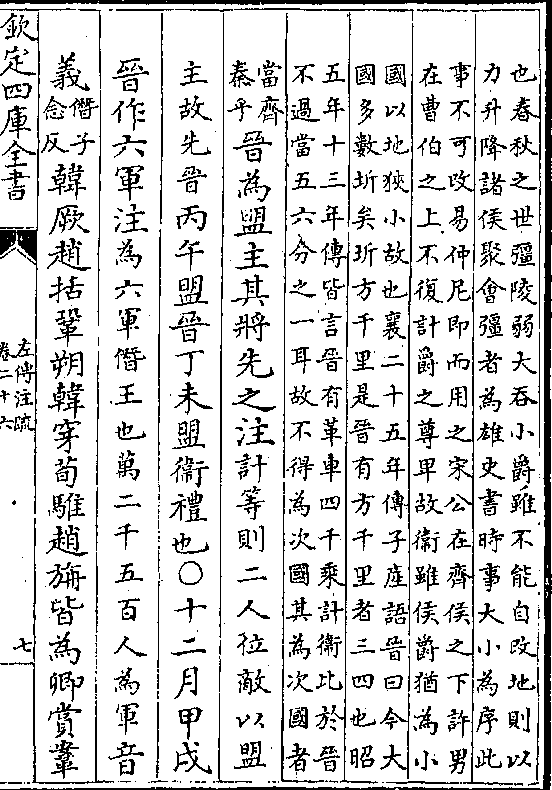 也春秋之世彊陵弱大吞小爵雖不能自改地則以
力升降諸侯聚會彊者為雄史書時事大小為序此
事不可改易仲尼即而用之宋公在齊侯之下許男
在曹伯之上不復計爵之尊卑故衛雖侯爵猶為小
國以地狹小故也襄二十五年傳子產語晉曰今大
國多數圻矣圻方千里是晉有方千里者三四也昭
五年十三年傳皆言晉有革車四千乘計衛比於晉
不過當五六分之一耳故不得為次國其為次國者
當齊秦乎晉為盟主其將先之注計等則二人位敵以盟
主故先晉丙午盟晉丁未盟衛禮也〇十二月甲戌
晉作六軍注為六軍僭王也萬二千五百人為軍音
義僭子念反韓厥趙括鞏朔韓穿荀騅趙旃皆為卿賞鞏
欽定四庫全書
左傳注疏
卷二十六
七